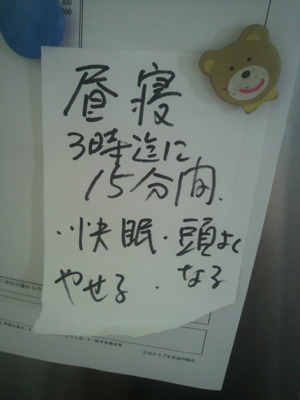 昼寝
3時迄に
15分間.
・快眠・頭よく
なる
やせる・